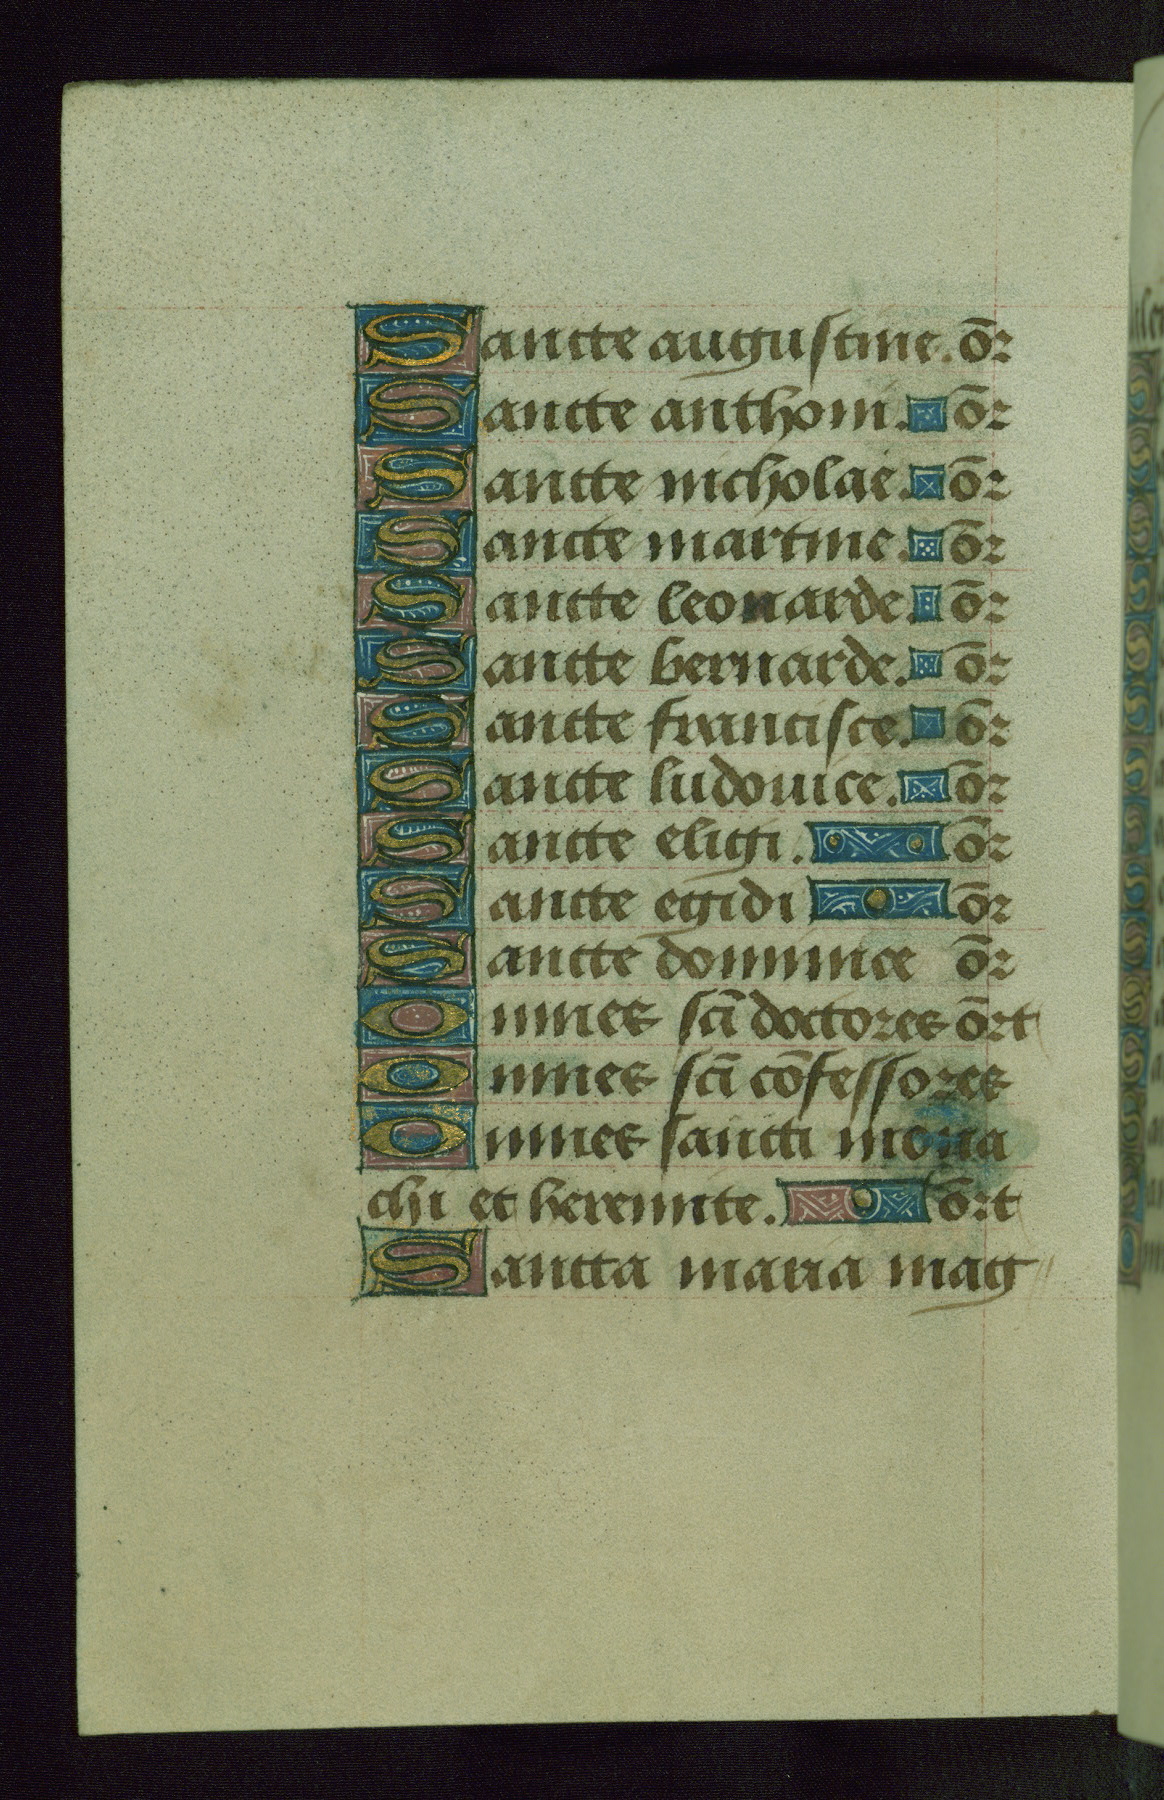 Sancte augustine. or̄
Sancte anthoni. or̄
Sancte nicholae. or̄
Sancte martine. or̄
Sancte leonarde. or̄
Sancte bernarde. or̄
Sancte francisce. or̄
Sancte ludouice. or̄
Sancte eligi. or̄
Sancte egidi or̄
Sancte dominice or̄
Omnes sc̄i doctores or̄t
Omnes sc̄i cōfessores
Omnes sancti mona
chi et heremite. or̄t
Sancta maria mag